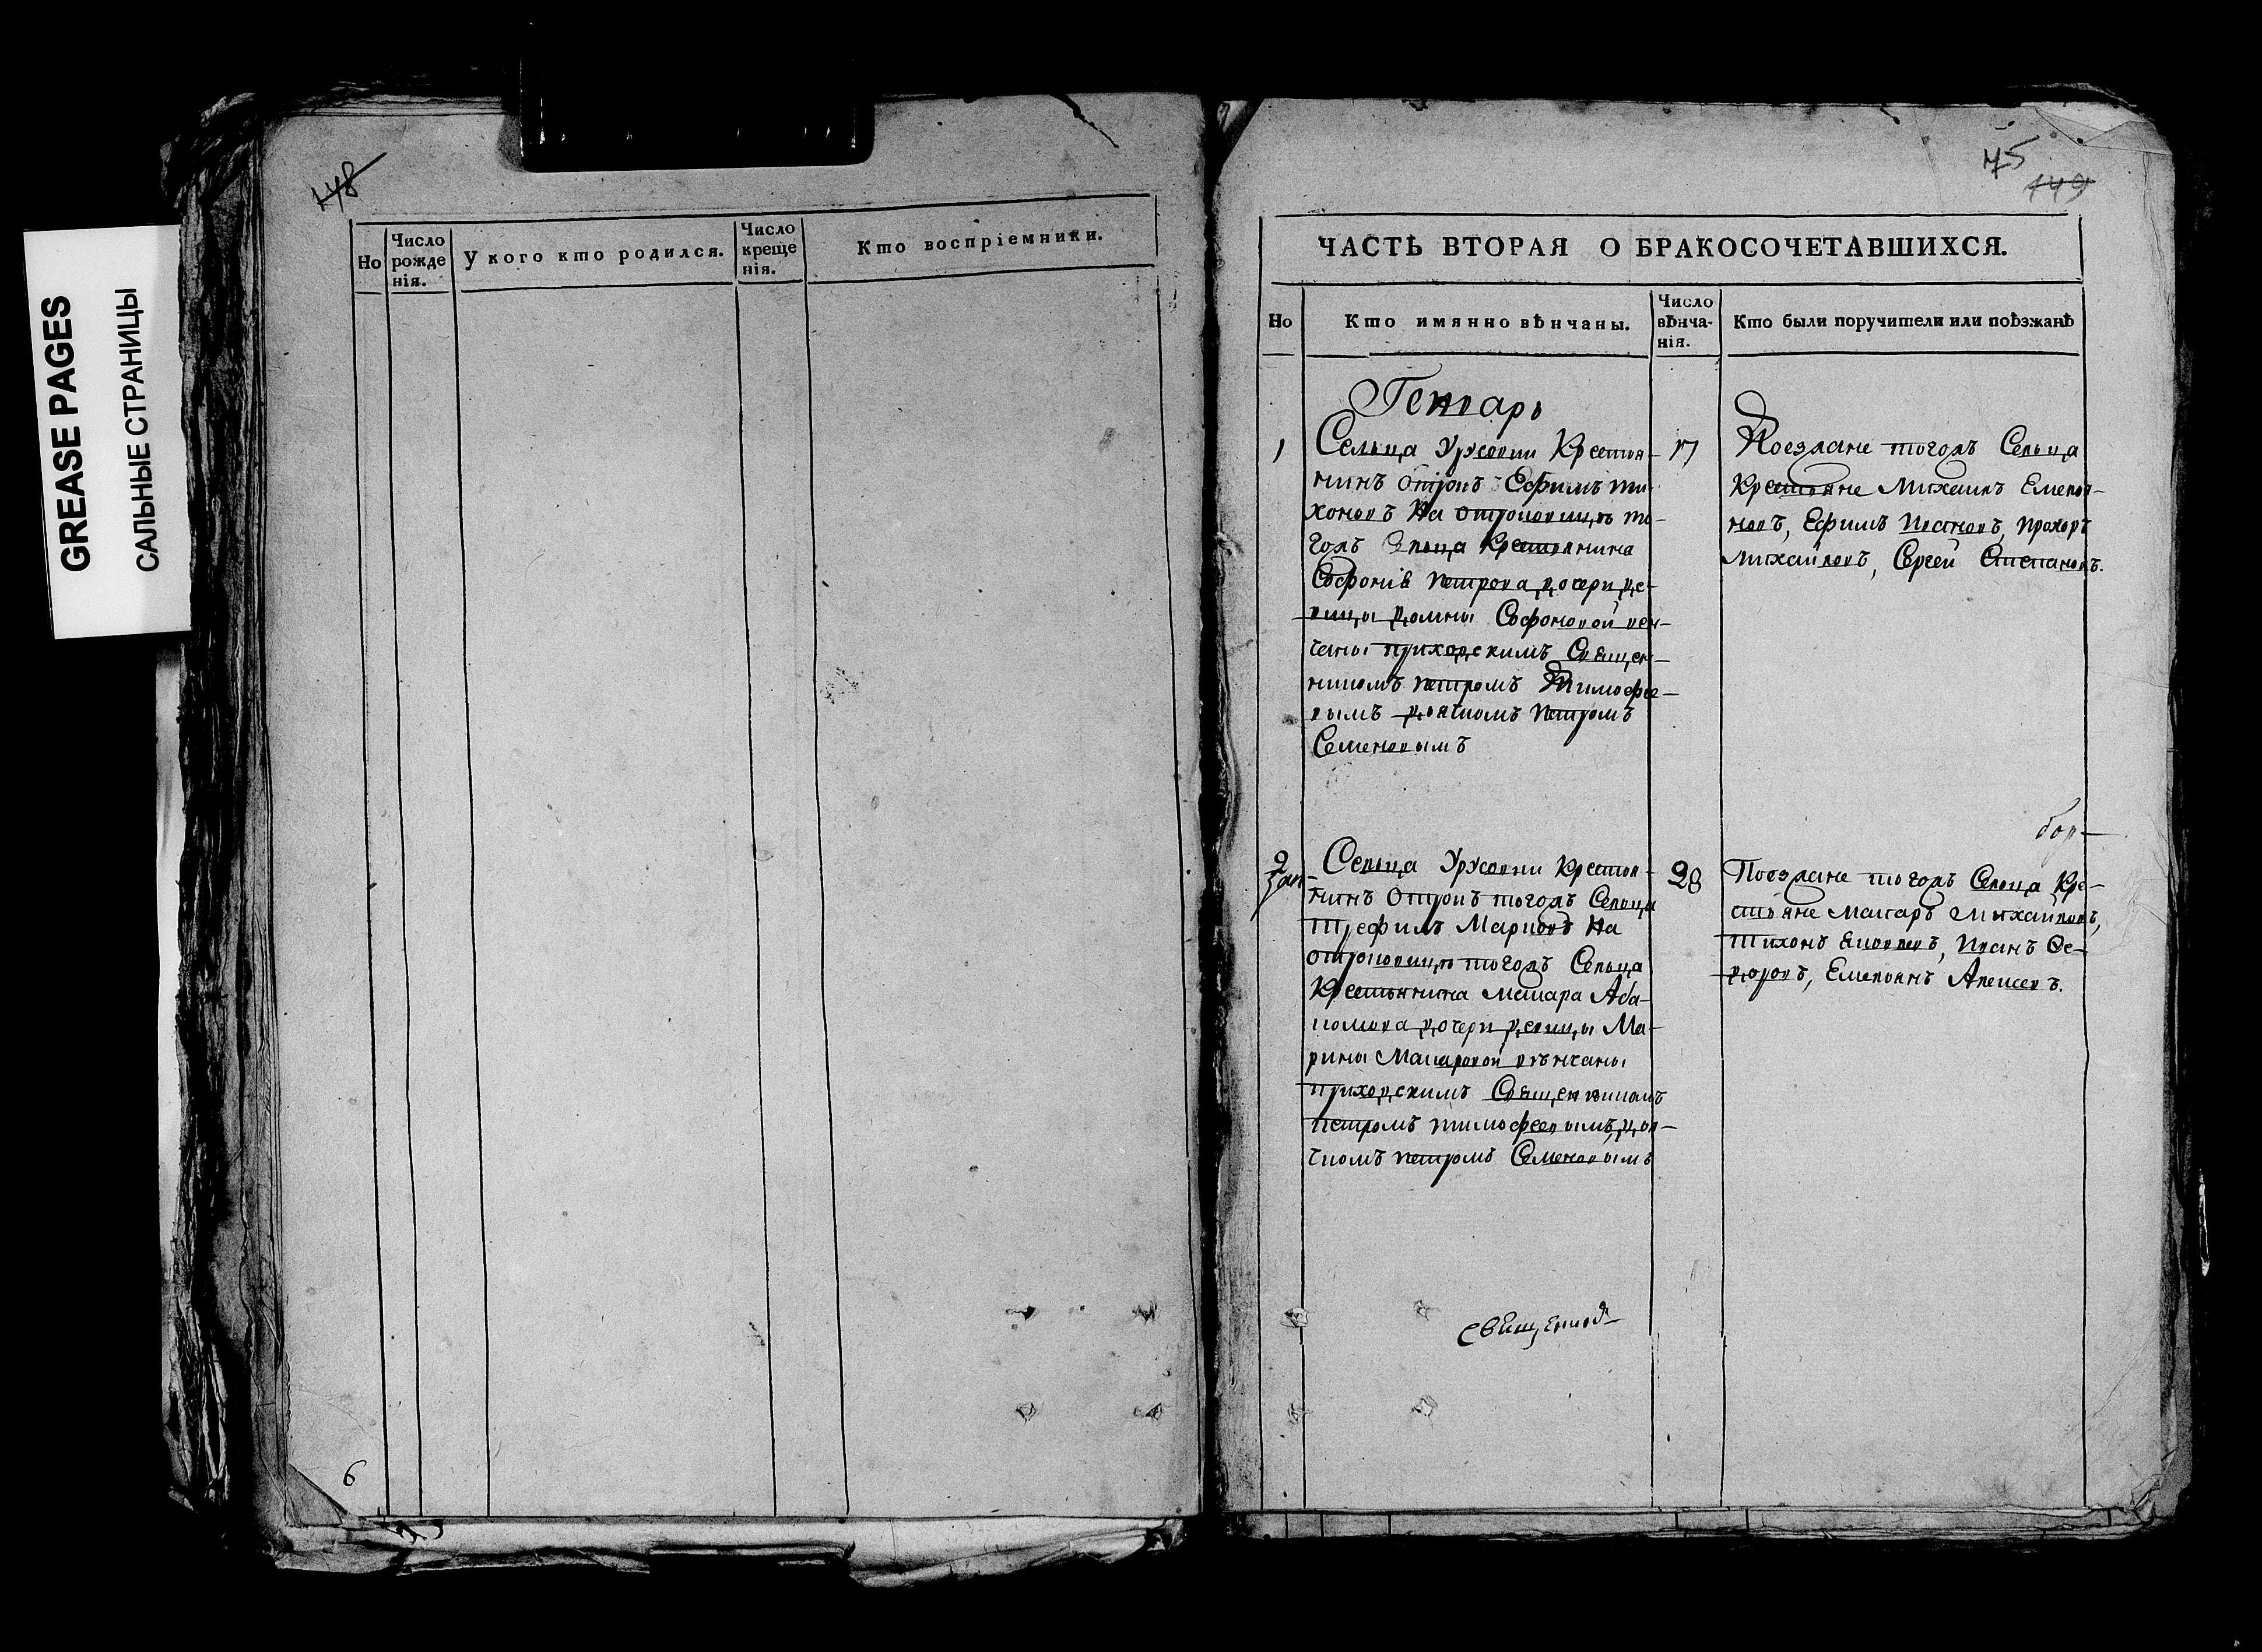 GREASE PAGES
САЛЬНЫЕ СТРАНИЦЫ
148
Но
Число рожде нія.
У кого кто родился.
Число креще нія.
Кто воспріемники.
6
75
149
ЧАСТЬ ВТОРАЯ О БРАКОСОЧЕТАВШИХСЯ.
Но
Кто имянно вѣнчаны.
Число вѣнча- нія.
Кто были поручители или поѣзжанѣ
Генварь
1
Сельца Урусовки Крестья-
нинъ отрокъ Ефимъ Ти-
хоновъ На отроковицѣ то-
гожъ Сельца Крестьянина
Софонія Петрова дочери де-
вицы Домны Софоновой вен-
чаны приходскимъ Священ-
никомъ Петромъ Тимофее-
вымъ дьячкомъ Петромъ
Семеновымъ
17
Поезжане тогожъ Сельца
Крестьяне Михаилъ Емелья-
новъ, Ефимъ Ивановъ, Прохоръ
Михайловъ, Сергей Степановъ.
2
Сельца Урусовки Крестья-
нинъ Отрокъ тогожъ Сельца
Трефилъ Марковъ На
отроковицѣ тогожъ Сельца
Крестьянина Макара Аба-
кумова дочери девицы Ма-
рины Макаровой вѣнчаны
приходскимъ Священникомъ
Петромъ Тимофеевымъ, дья-
чкомъ Петромъ Семеновымъ
28
Поезжане тогожъ Сельца Кре-
стьяне Макаръ Михайловъ,
Тихонъ Яковлевъ, Иванъ Фе-
доровъ, Емельянъ Алексеевъ.